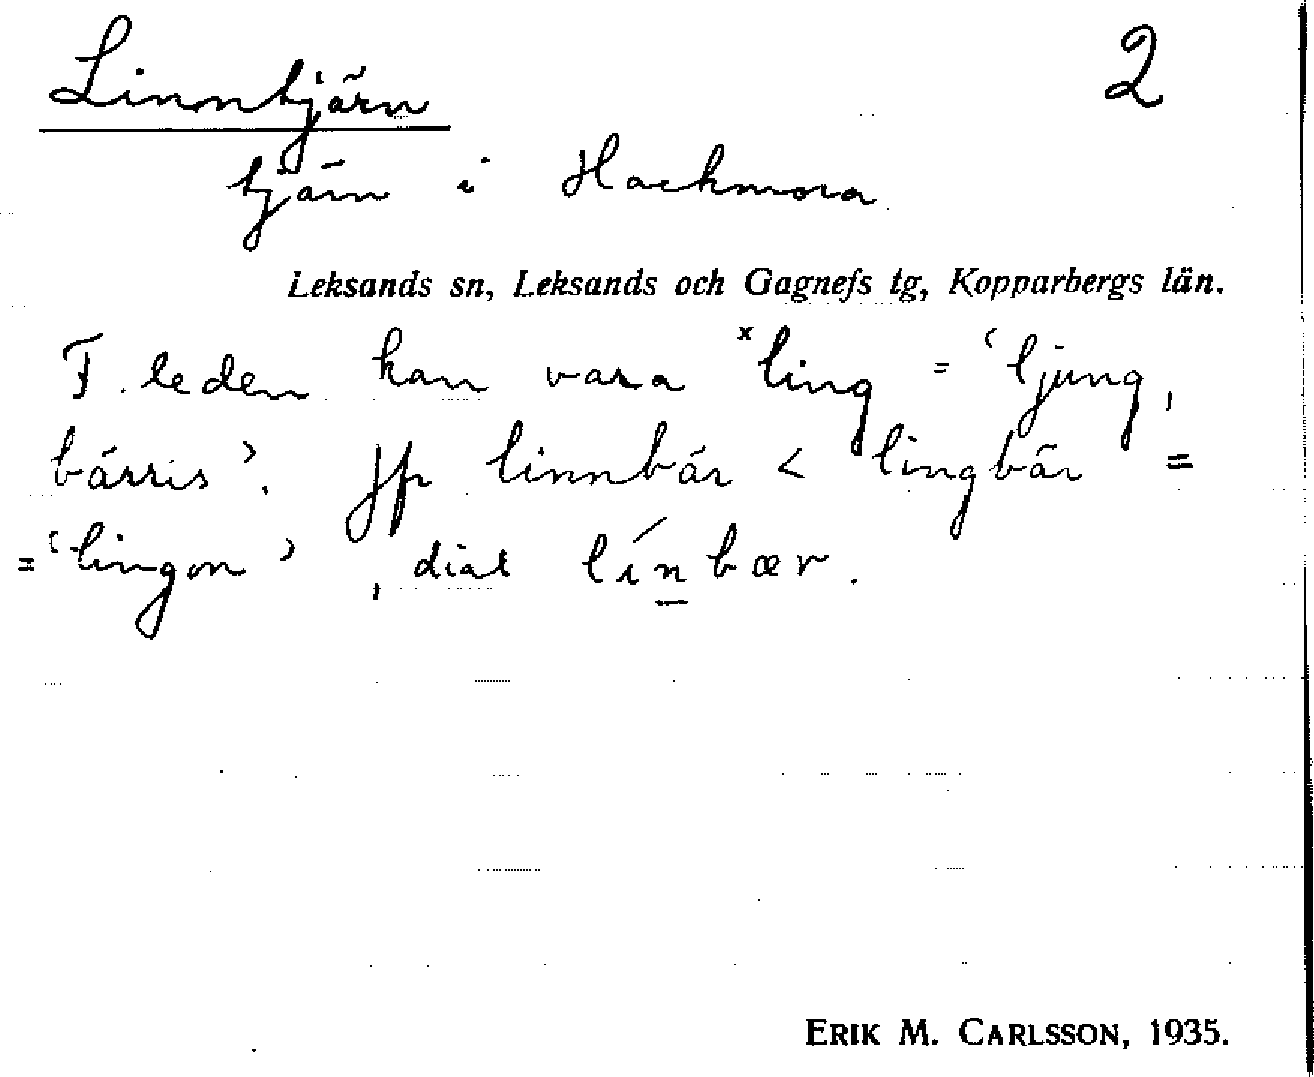 Linntjärn 2
tjärn i Hackmora
Leksands sn, Leksands och Gagnefs tg, Kopparbergs län.
F. leden kan vara *ling = ‘ljung,
bärris’. Jfr linnbär < lingbär =
= ‘lingon’, dial línbær.
ERIK M. CARLSSON, 1935.